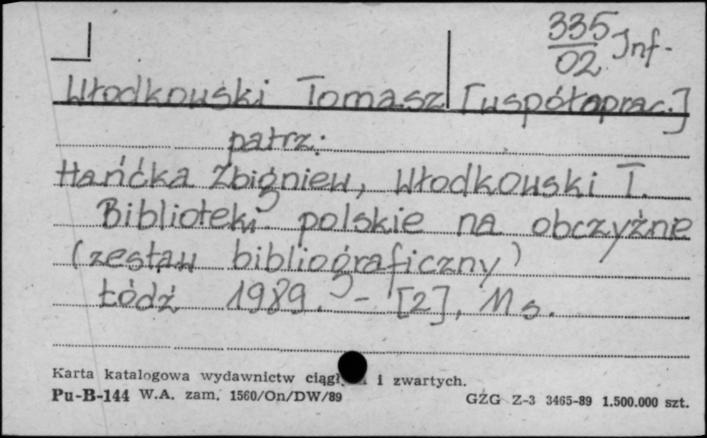 335
02 Inf.
Włodkowski Tomasz [współoprac.]
patrz:
Hańćka Zbigniew, Włodkowski T.
Biblioteki polskie na obczyźne
(zestaw bibliograficzny)
Łódź 1989. - [2], 11 s.
Karta katalogowa wydawnictw ciągłych i zwartych.
Pu-B-144 W.A. zam. 1560/On/DW/89
GZG Z-3 3465-89 1.500.000 szt.